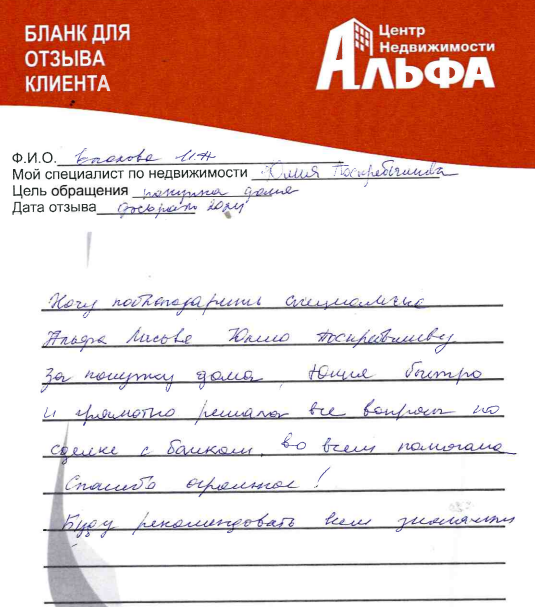 БЛАНК ДЛЯ
ОТЗЫВА
КЛИЕНТА
Центр
Недвижимости
АЛЬФА
Ф.И.О. И.Н
Мой специалист по недвижимости Юлия Поскребышева
Цель обращения покупка дома
Дата отзыва февраль 2024
Хочу поблагодарить специалиста
Альфа Юлию Поскребышеву
За покупку дома, Юлия быстро
и грамотно решала все вопросы по
сделке с банком, во всем помогала
Спасибо огромное!
Буду рекомендовать всем знакомым